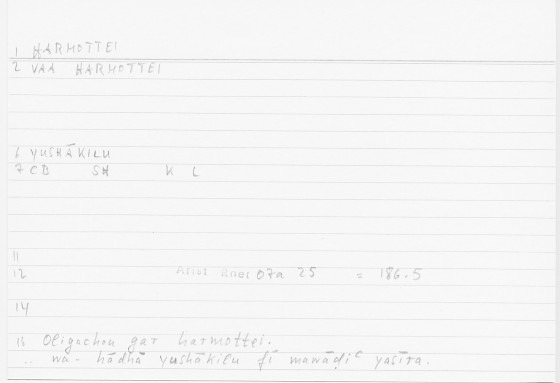 1 HARMOTTEI
2 VAA HARMOTTEI
6 YUSHĀKILU
7 CB SH K L
11
12 Arist Rhet 07a 25 = 186.5
14
15 Oligachou gar harmottei.
.. wa- hādhā yushākilu fī mawāḍiʿ yasīra.